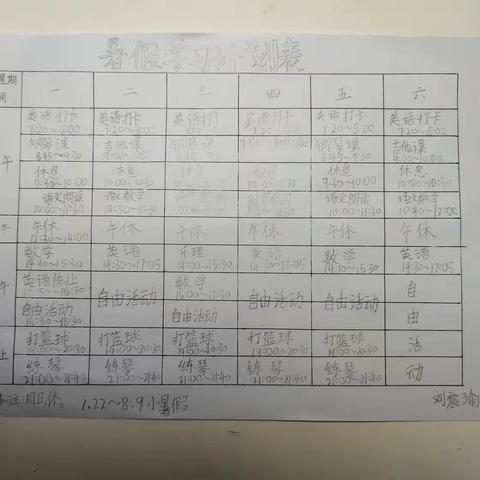 暑假学习计划表
星期 一 二 三 四 五 六
间
英语打卡 英语打卡 英语打卡 英语打卡 英语打卡 英语打卡
7:20~8:00 7:20~8:00 7:20~8:00 7:20~8:00 7:20~8:00 7:20~8:00
钢琴课 吉他课 钢琴课 钢琴课 吉他课
8:45~9:30 9:00~10:00 8:45~9:30 9:00~10:00
午 休息 休息 休息 休息 休息
9:30~10:00 10:00~10:30 9:30~10:00
语文朗读 语文数学 语文朗读 语文数学
10:00~11:30 10:00~11:30 10:40~12:00
午 午休 午休 午休 午休 午休 午休
12:30~14:00
数学 英语 乐理 英语 数学 英语
14:10~15:30 14:30~17:05 14:00~15:30 14:30~17:05 14:10~15:30 14:30~17:05
午 英语作业 自由活动 数学 自由活动 自由活动 自
16:00~17:30
自由活动 自由活动 由
打篮球 打篮球 打篮球 打篮球 打篮球 活
19:00~20:30 19:00~20:30 19:00~20:30 19:00~20:30 19:00~20:30
上 练琴 练琴 练琴 练琴 练琴 动
21:00~21:40 21:00~21:40 21:00~21:40 21:00~21:40 21:00~21:40
备注:周日休。 1.22~8.9小暑假 刘宸瑜